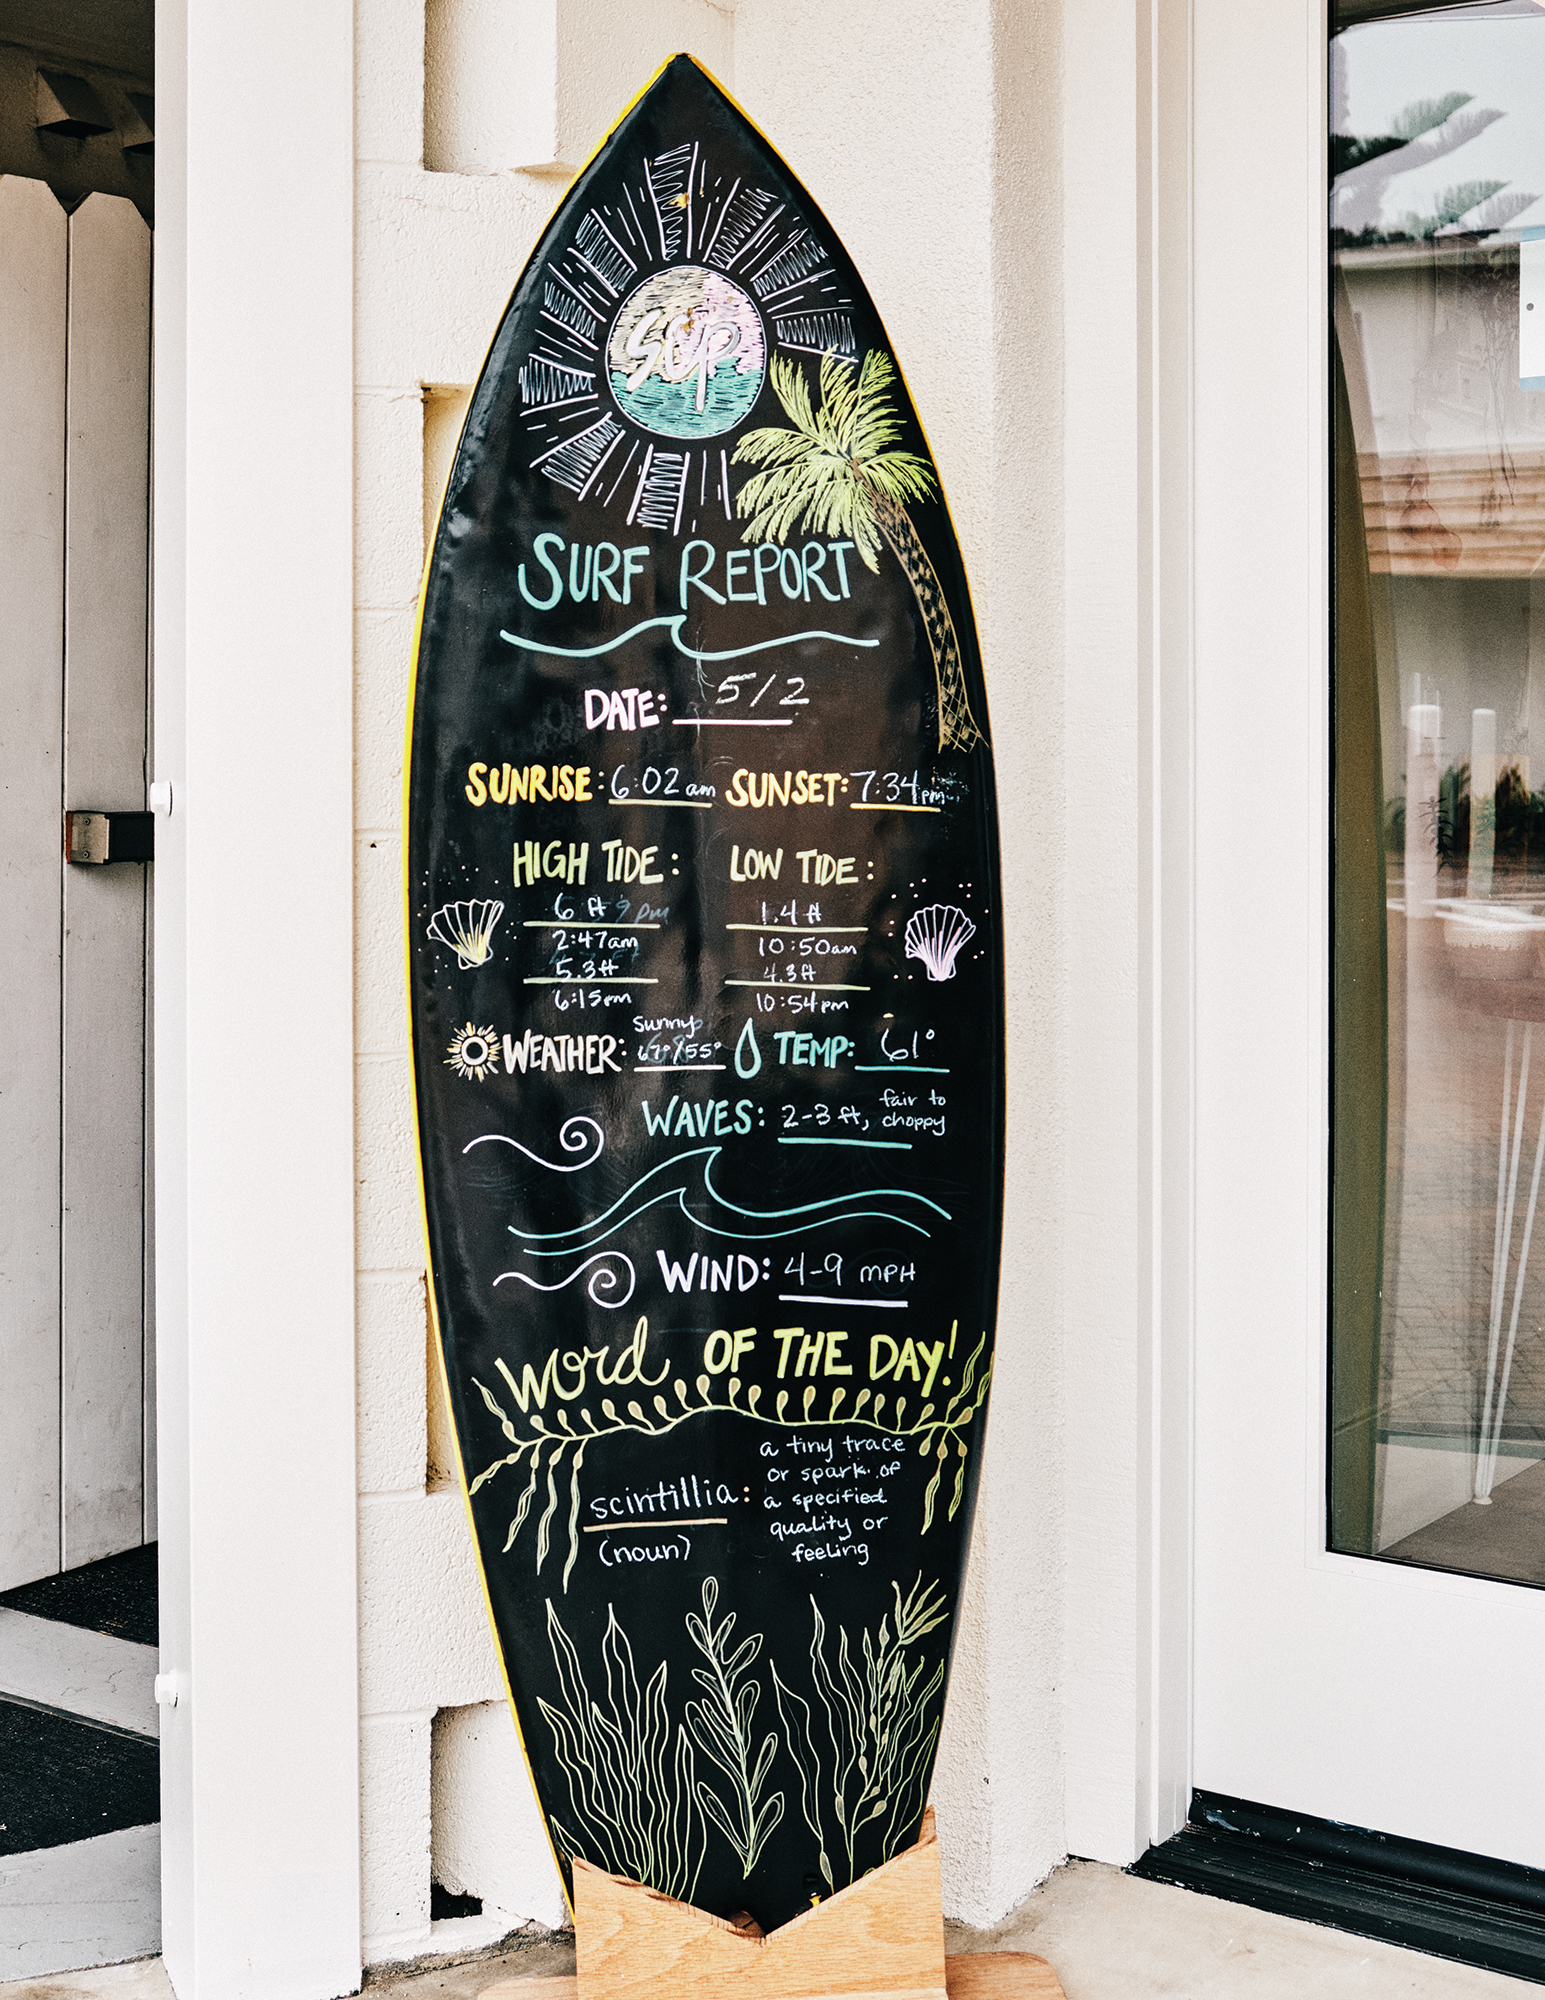 SCP
SURF REPORT
DATE: 5/2
SUNRISE: 6:02 am SUNSET: 7:34 pm
HIGH TIDE: LOW TIDE:
6 ft 1.4 ft
2:47am 10:50am
5.3 ft 4.3 ft
6:15pm 10:54pm
Sunny
WEATHER: 67°/55° TEMP: 61°
WAVES: 2-3 ft, fair to choppy
WIND: 4-9 MPH
word OF THE DAY!
a tiny trace
or spark of
scintillia: a specified
quality or
(noun) feeling